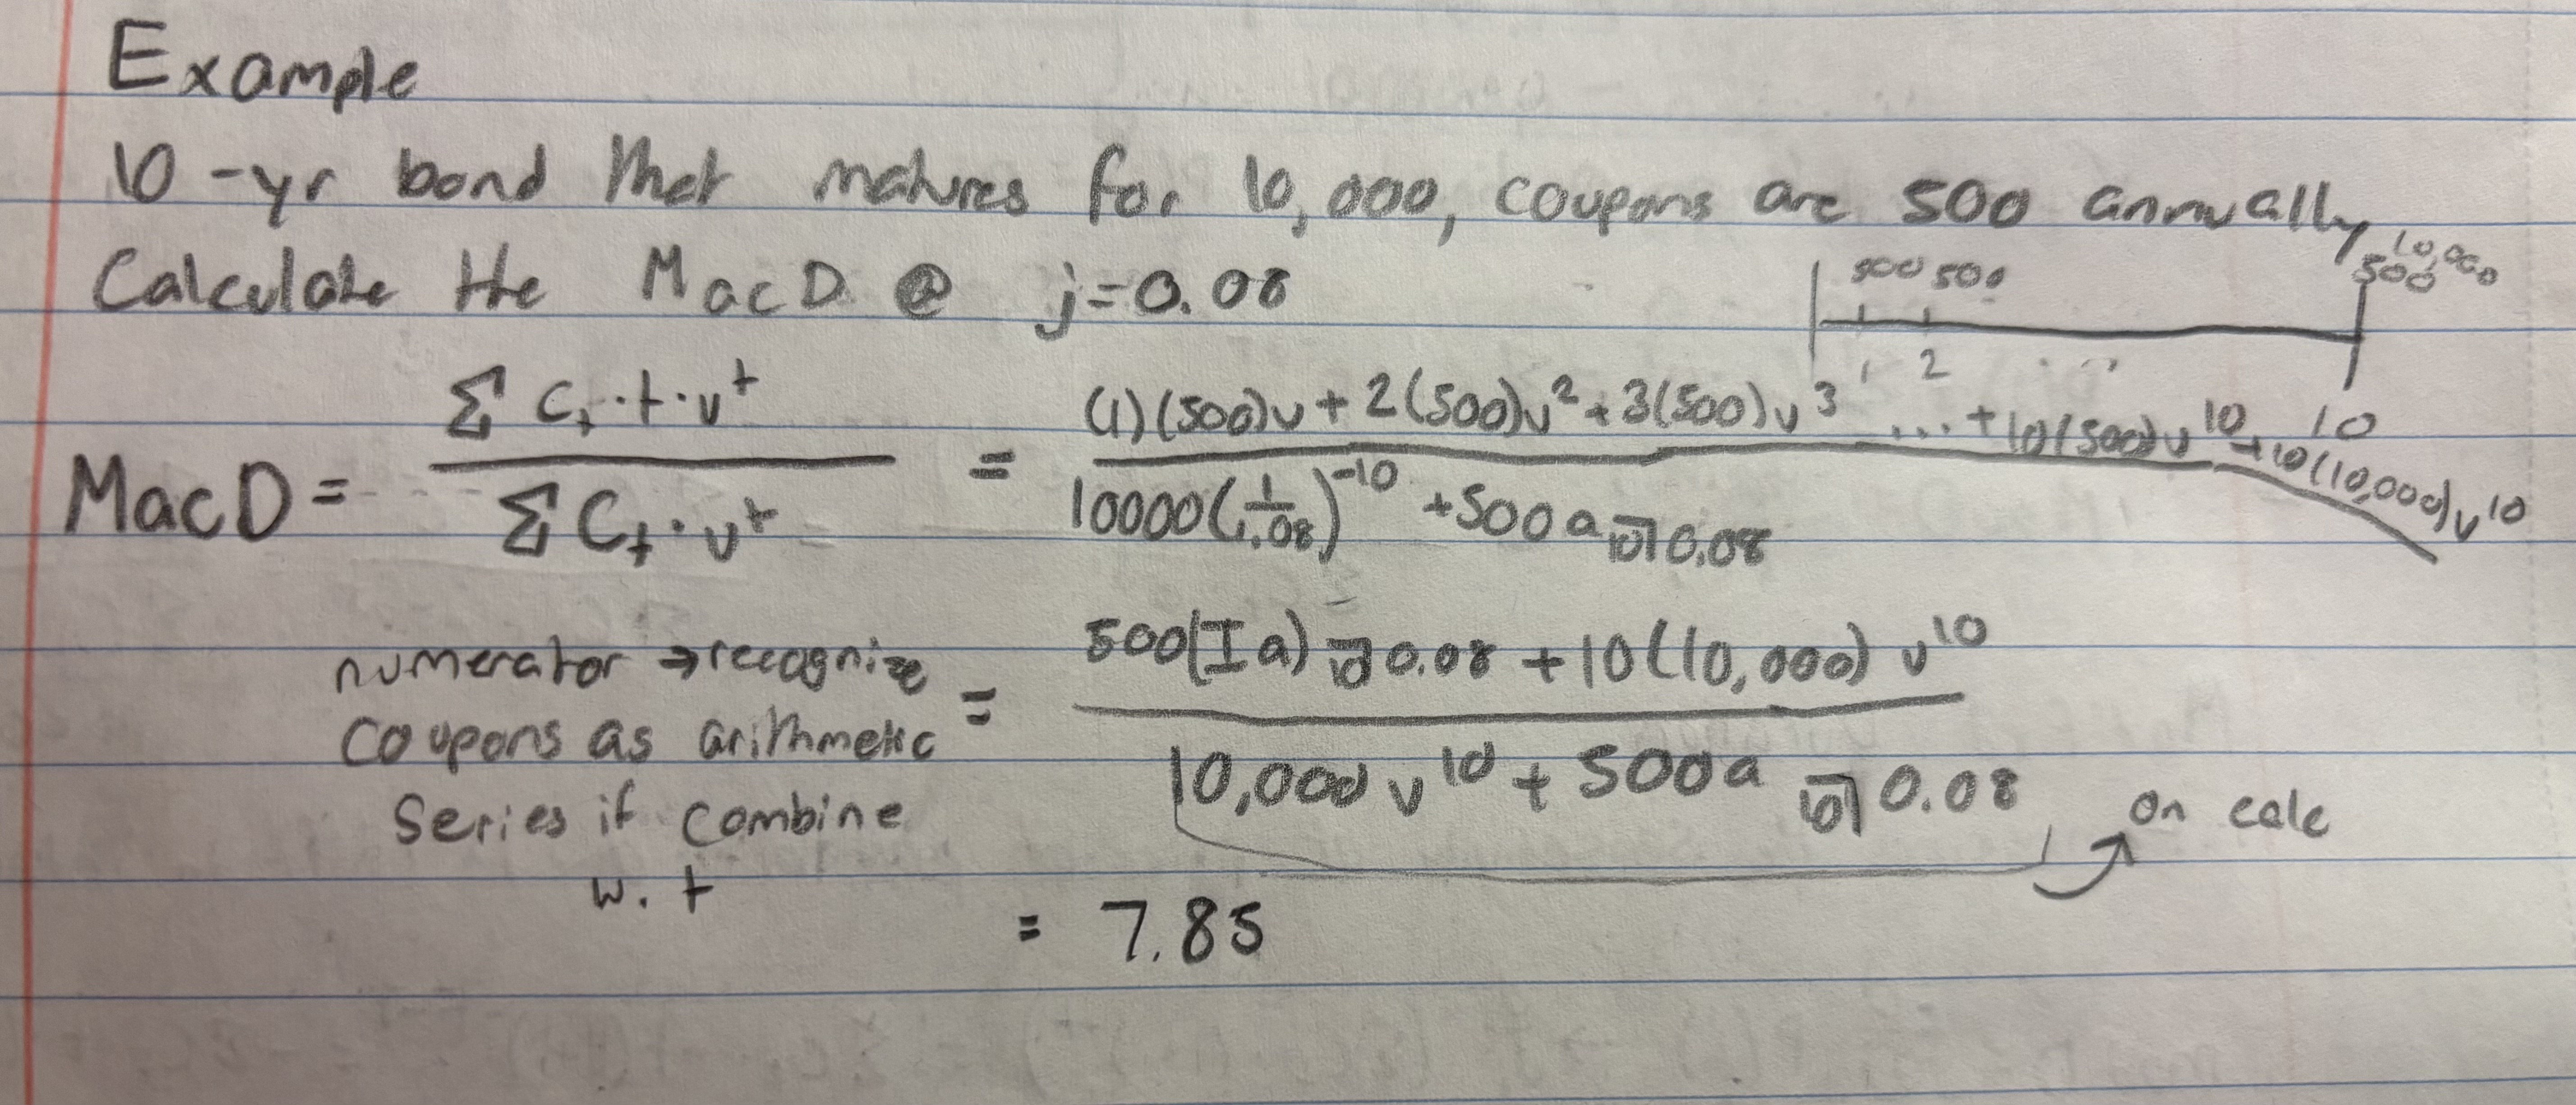 Example
10-yr bond that matures for 10,000, coupons are 500 annually
Calculate the MacD @ j=0.08
500 500 10,000 500
1 2 ... 10
MacD = Σ C_t · t · v^t / Σ C_t · v^t = (1)(500)v + 2(500)v^2 + 3(500)v^3 ... + 10(500)v^10 + 10(10,000)v^10 / 10000(1/1.08)^-10 + 500 a_10┐0.08
numerator → recognize
coupons as arithmetic
series if combine
w. t
= 500(Ia)_10┐0.08 + 10(10,000) v^10 / 10,000 v^10 + 500 a_10┐0.08
on calc
= 7.85